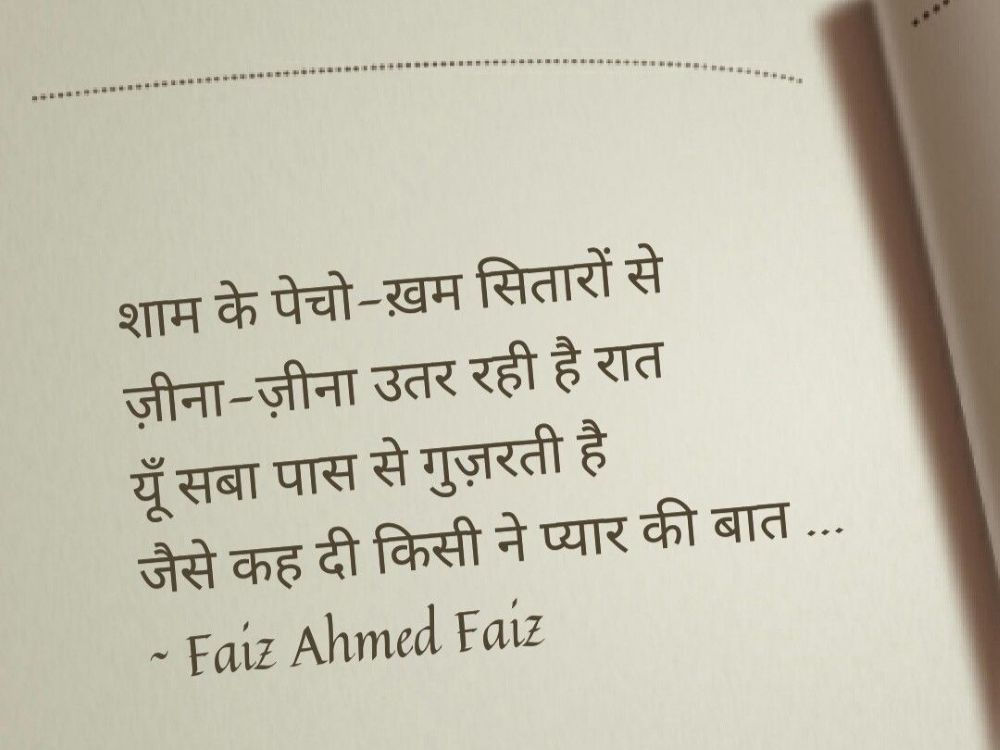 शाम के पेचो-ख़म सितारों से
ज़ीना-ज़ीना उतर रही है रात
यूँ सबा पास से गुज़रती है
जैसे कह दी किसी ने प्यार की बात ...
~ Faiz Ahmed Faiz